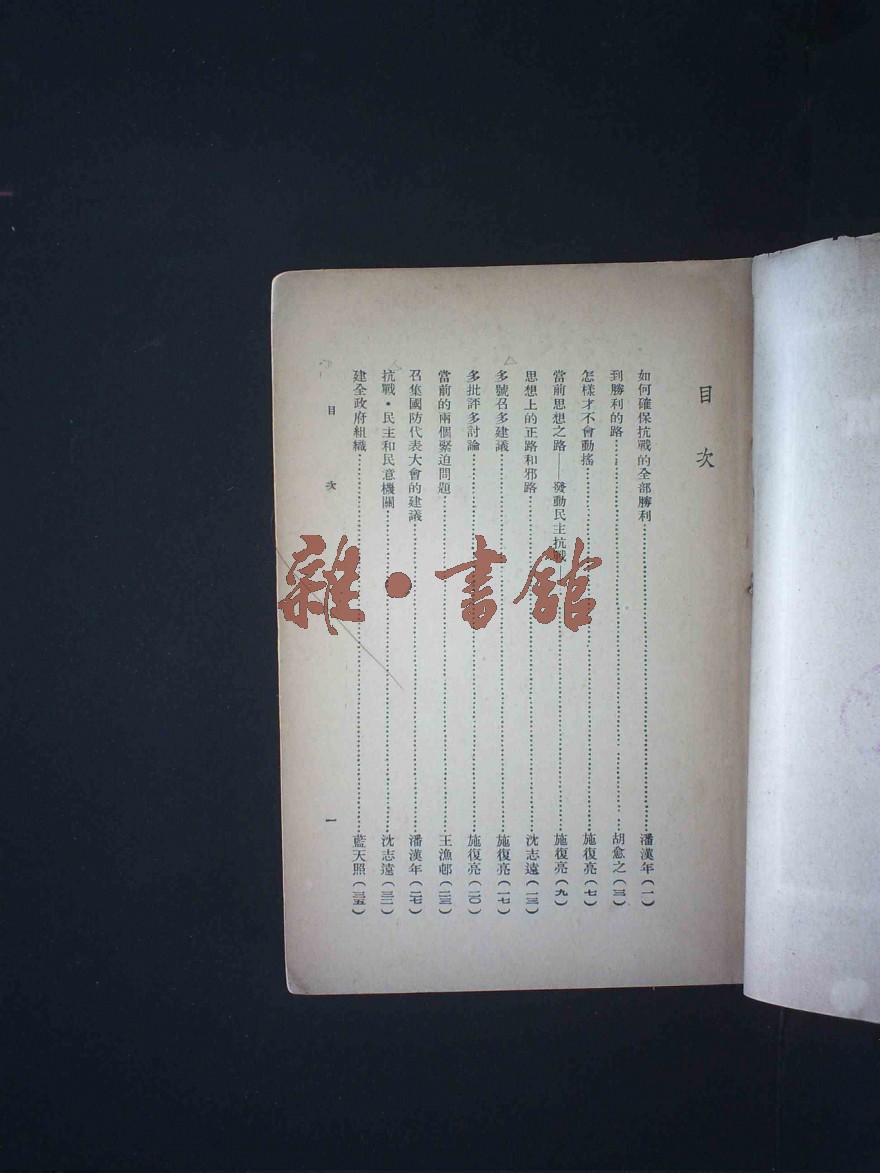 目次
如何確保抗戰的全部勝利……潘漢年（一）
到勝利的路……胡愈之（三）
怎樣才不會動搖……施復亮（七）
當前思想之路——發動民主抗戰……施復亮（九）
思想上的正路和邪路……沈志遠（一三）
多號召多建議……施復亮（一七）
多批評多討論……施復亮（二〇）
當前的兩個緊迫問題……王漁邨（二三）
召集國防代表大會的建議……潘漢年（二七）
抗戰·民主和民意機關……沈志遠（三二）
建全政府組織……藍天照（三五）
目次 一
雜·書館